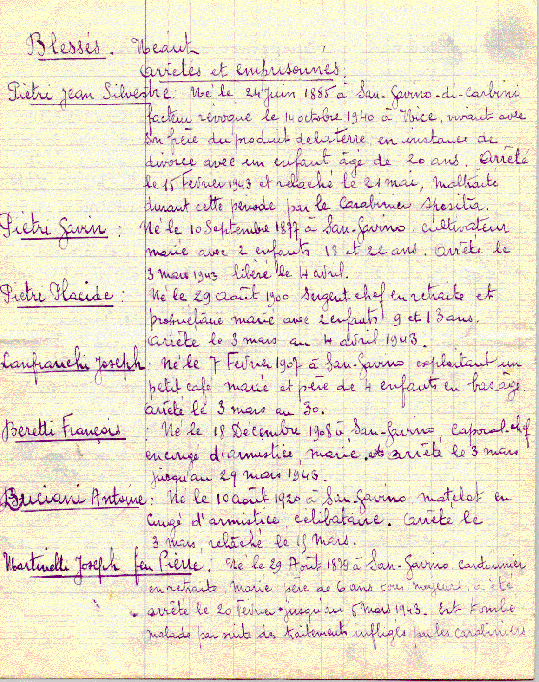 Blessés. Néant
Arrêtés et emprisonnés.
Pietri Jean Silvestre : Né le 24 juin 1885 à San-Gavino-di-Carbini
facteur révoqué le 14 octobre 1940 à Nice, vivant avec
son frère du produit de la terre, en instance de
divorce avec un enfant âgé de 20 ans. Arrêté
le 15 Fevrier 1943 et relaché le 21 mai, maltraité
durant cette période par le Carabinier
Piètre Gavin : Né le 10 Septembre 1877 à San-Gavino, cultivateur
marié avec 2 enfants 18 et 22 ans. Arrêté le
3 mars 1943 libéré le 4 avril.
Pietre Placide : Né le 29 août 1900 Sergent chef en retraite et
propriétaire marié avec 2 enfants 9 et 13 ans.
Arrêté le 3 mars au 4 avril 1943.
Lanfranchi Joseph Né le 7 Fevrier 1907 à San-Gavino exploitant un
petit café marié et père de 4 enfants en bas âge
arrêté le 3 mars au 30.
Beretti François Né le 18 Decembre 1908 à San-Gavino caporal-chef
en congé d'armistice, marié, arrêté le 3 mars
jusqu'au 29 mars 1943.
Luciani Antoine : Né le 10 août 1920 à San-Gavino matelot en
congé d'armistice célibataire. Arrêté le
3 mars, relâché le 15 mars.
Martinelli Joseph feu Pierre. Né le 29 Août 1879 à San-Gavino cordonnier
en retraite marié père de 6 ans tous majeurs, a été
arrêté le 20 Fevrier jusqu'au 5 mars 1943. Est tombé
malade par suite des traitements infligés par les carabiniers